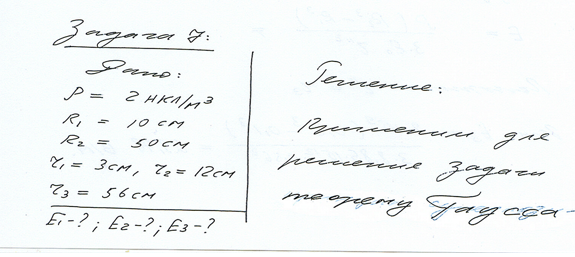 Задача 7:
Дано:
ρ = 2 нкл/м³
R₁ = 10 см
R₂ = 50 см
r₁ = 3 см, r₂ = 12 см
r₃ = 56 см
E₁-?; E₂-?; E₃-?
Решение:
Применим для
решения задачи
теорему Гаусса-